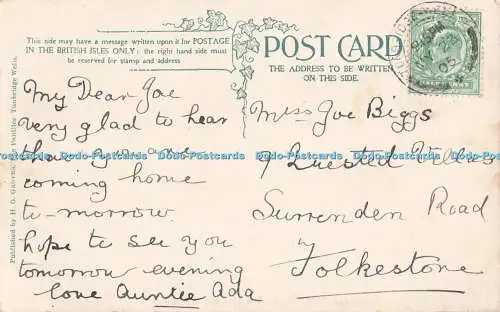 This side may have a message written upon it for POSTAGE
IN THE BRITISH ISLES ONLY: the right hand side must
be reserved for stamp and address
POST CARD
THE ADDRESS TO BE WRITTEN
ON THIS SIDE.
My Dear Joe
very glad to hear
that you are
coming home
to-morrow
hope to see you
tomorrow evening
love Auntie Ada
Miss Joe Biggs
9 Quested Villas
Surrenden Road
Folkestone
Dodo-Postcards Dodo-Postcards Dodo-Postcards Dodo-Postcards Dodo-Postcards Dodo-Postcards Dodo-Postcards
Tunbridge Wells.